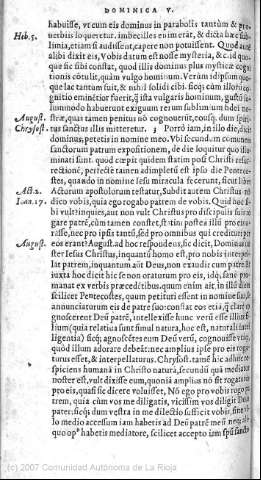 DOMINICA V.
habuisse, ut cum eis dominus in parabolis tantùm & pro-
Heb. 5. verbiis loqueretur. imbecilles enim erāt, & dicta hæc sub-
limia, etiam si audissēt, capere non potuissent. Quod aūt
alibi dixit eis, Vobis datum est nosse mysteria, & cæ. quo-
que sic fuit constat, quod illi dominus plus mysticæ cogni-
tionis cōtulit, quàm vulgo hominum. Verùm id ipsum quo-
que lac tantum fuit, & nihil solidi cibi. sicq; cùm illorū co-
gnitio eminētior fuerit, q̃ ista vulgaris hominum, gustū
habuerunt exiguum rerum sublimium
August. stræ, quas tamen penitus nō cognouerūt, dum spiri-
Chrysost. tus sanctus illis mitteretur. Porrò iam, in illo die, dicit
dominus, petitis in nomine meo. Vbi secundùm communem
sanctorum patrum expositionem, de die loquitur quo illu-
minati sunt. quod cœpit quidem statim post Christi resur-
rectionē, perfectè tamen adimpletū est ipso die Penteco-
stes, quando in nomine Iesu miracula fecerunt, sicut liber
Act. 2. Actorum apostolorum testatur. Subdit autem Christus: nō
Ioan. 17. dico vobis, quia ego rogabo patrem de vobis. Quid hoc si-
bi vult inquies, aut non vult Christus pro discipulis suis ro-
gare patrē, cùm tamen constet, statim postea illū pro eis
rasse, nec pro ipsis tantū, sed pro omnibus qui credituri per
August. eos erant? August. ad hoc respondens, sic dicit, Dominus no-
ster Iesus Christus, inquantū homo est, pro nobis interpel-
lat patrem, inquantum aūt Deus, non exaudit cum patre
iuxta hoc dicit hic se non oraturum pro eis, idq; sanè pro-
manat ex verbis præcedētibus. quum enim ait, in illo die
scilicet Pentecostes, quum petituri essent in nomine suo, &
annunciaturum eis de patre suo: constat eos etiā, q̃ clarè
gnoscerent Deū patrē, intellexisse hunc verū esse illius fi-
lium (quia relatiua sunt simul natura, hoc est, naturali intel-
ligentia) sicq; agnoscētes eum Deū verū, cognouisse
quòd illum adorare debērent, nec amplius ipse pro eis roga-
turus esset, & interpellaturus. Chrysost. tamē hîc adhuc re-
spiciens humanā in Christo natura, secundū quā mediator
noster est, vult dixisse eum, quòniā amplius nō sit rogaturus
pro eis, quasi sic dicere voluisset, Nō ego pro vobis rogo pa-
trem, quia cùm vos me diligatis, vicissim vos diligit Deus
pater: sicq; dum vestra in me dilectio sufficit vobis, sine ul-
lo medio accessum iam haberis ad Deū patrē
quo opꝰ habetis mediatore, scilicet accepto iam spū sancto
(c) 2007 Comunidad Autónoma de La Rioja